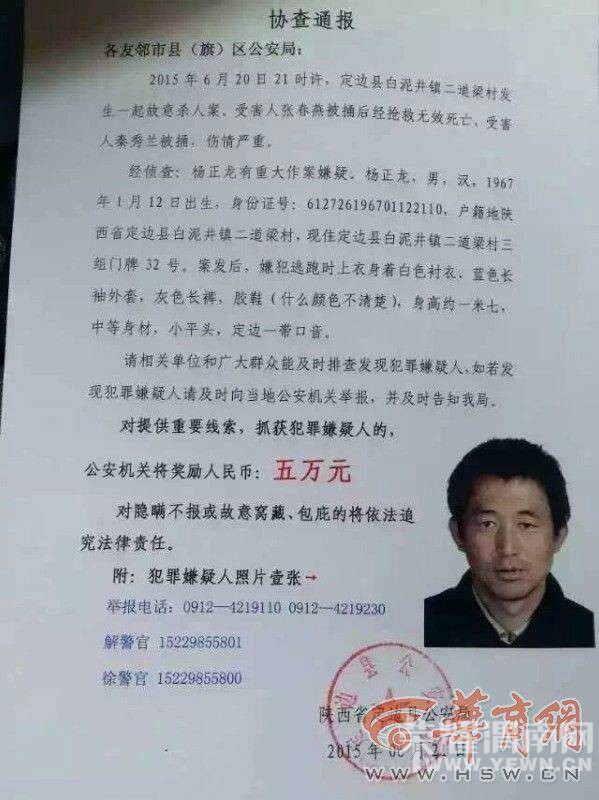 协查通报
各友邻市县（旗）区公安局：
2015年6月20日21时许，定边县白泥井镇二道梁村发
生一起故意杀人案。受害人张春燕被捅后经抢救无效死亡，受害
人秦秀兰被捅，伤情严重。
经侦查：杨正龙有重大作案嫌疑。杨正龙，男，汉，1967
年1月12日出生，身份证号：612726196701122110，户籍地陕
西省定边县白泥井镇二道梁村，现住定边县白泥井镇二道梁村三
组门牌32号。案发后，嫌犯逃跑时上衣身着白色衬衣、蓝色长
袖外套，灰色长裤，胶鞋（什么颜色不清楚），身高约一米七，
中等身材，小平头，定边一带口音。
请相关单位和广大群众能及时排查发现犯罪嫌疑人，如若发
现犯罪嫌疑人请及时向当地公安机关举报，并及时告知我局。
对提供重要线索，抓获犯罪嫌疑人的，
公安机关将奖励人民币：五万元
对隐瞒不报或故意窝藏、包庇的将依法追
究法律责任。
附：犯罪嫌疑人照片壹张→
举报电话：0912—4219110 0912—4219230
解警官 15229855801
徐警官 15229855800
陕西省定边县公安局
2015年06月21日
华商网
WWW.HSW.CN
WWW.YEWN.CN